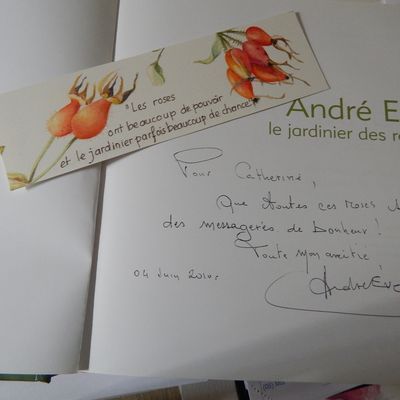 "Les roses
ont beaucoup de pouvoir
et le jardinier parfois beaucoup de chance"
André E
le jardinier des r
Pour Catherine,
Que toutes ces roses
des messagères de bonheur !
Toute mon amitié
04 Juin 2010.
André Eve